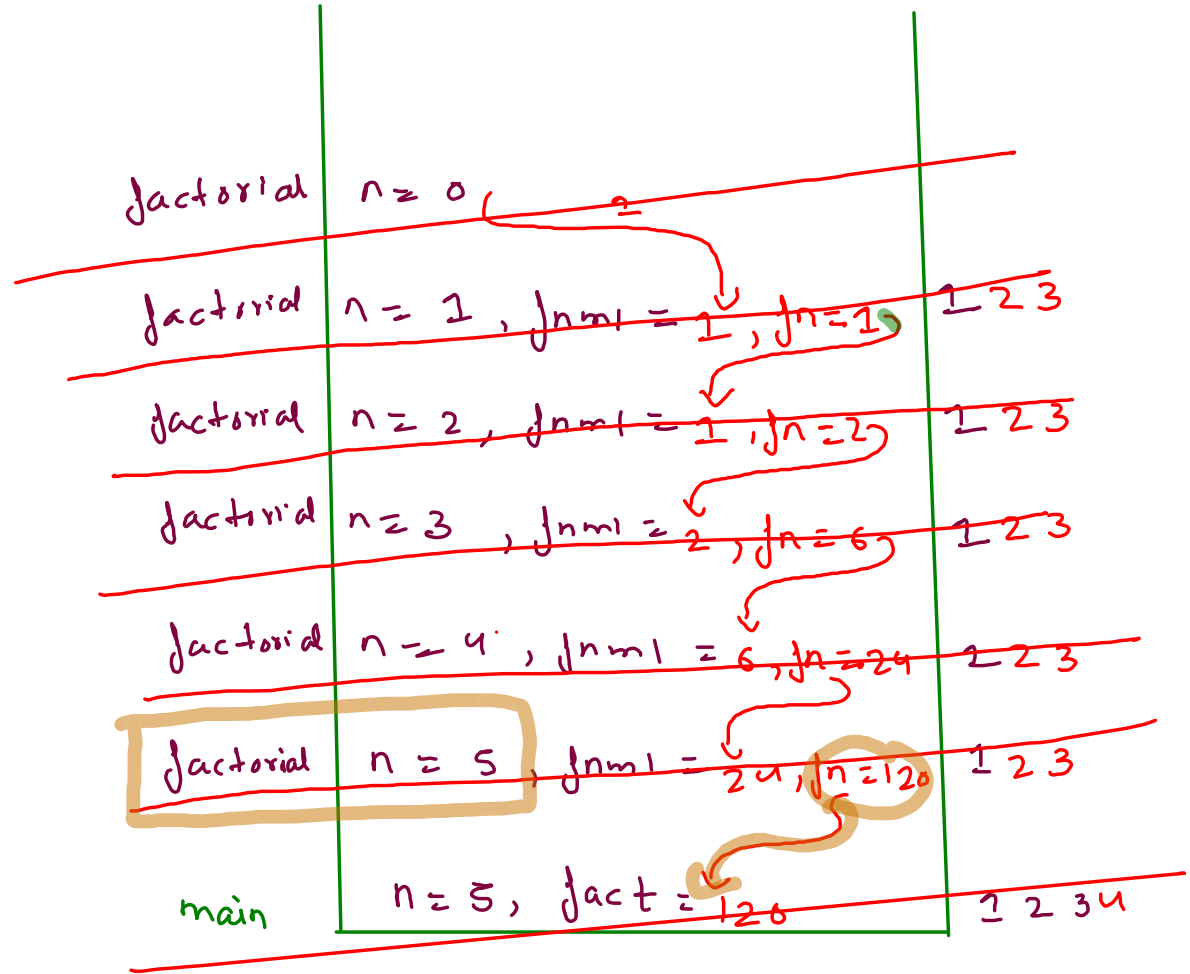 factorial n = 0
factorial n = 1 , fnm1 = 1 , fn = 1 1 2 3
factorial n = 2 , fnm1 = 1 , fn = 2 1 2 3
factorial n = 3 , fnm1 = 2 , fn = 6 1 2 3
factorial n = 4 , fnm1 = 6 , fn = 24 1 2 3
factorial n = 5 , fnm1 = 24 , fn = 120 1 2 3
main n = 5 , fact = 120 1 2 3 4